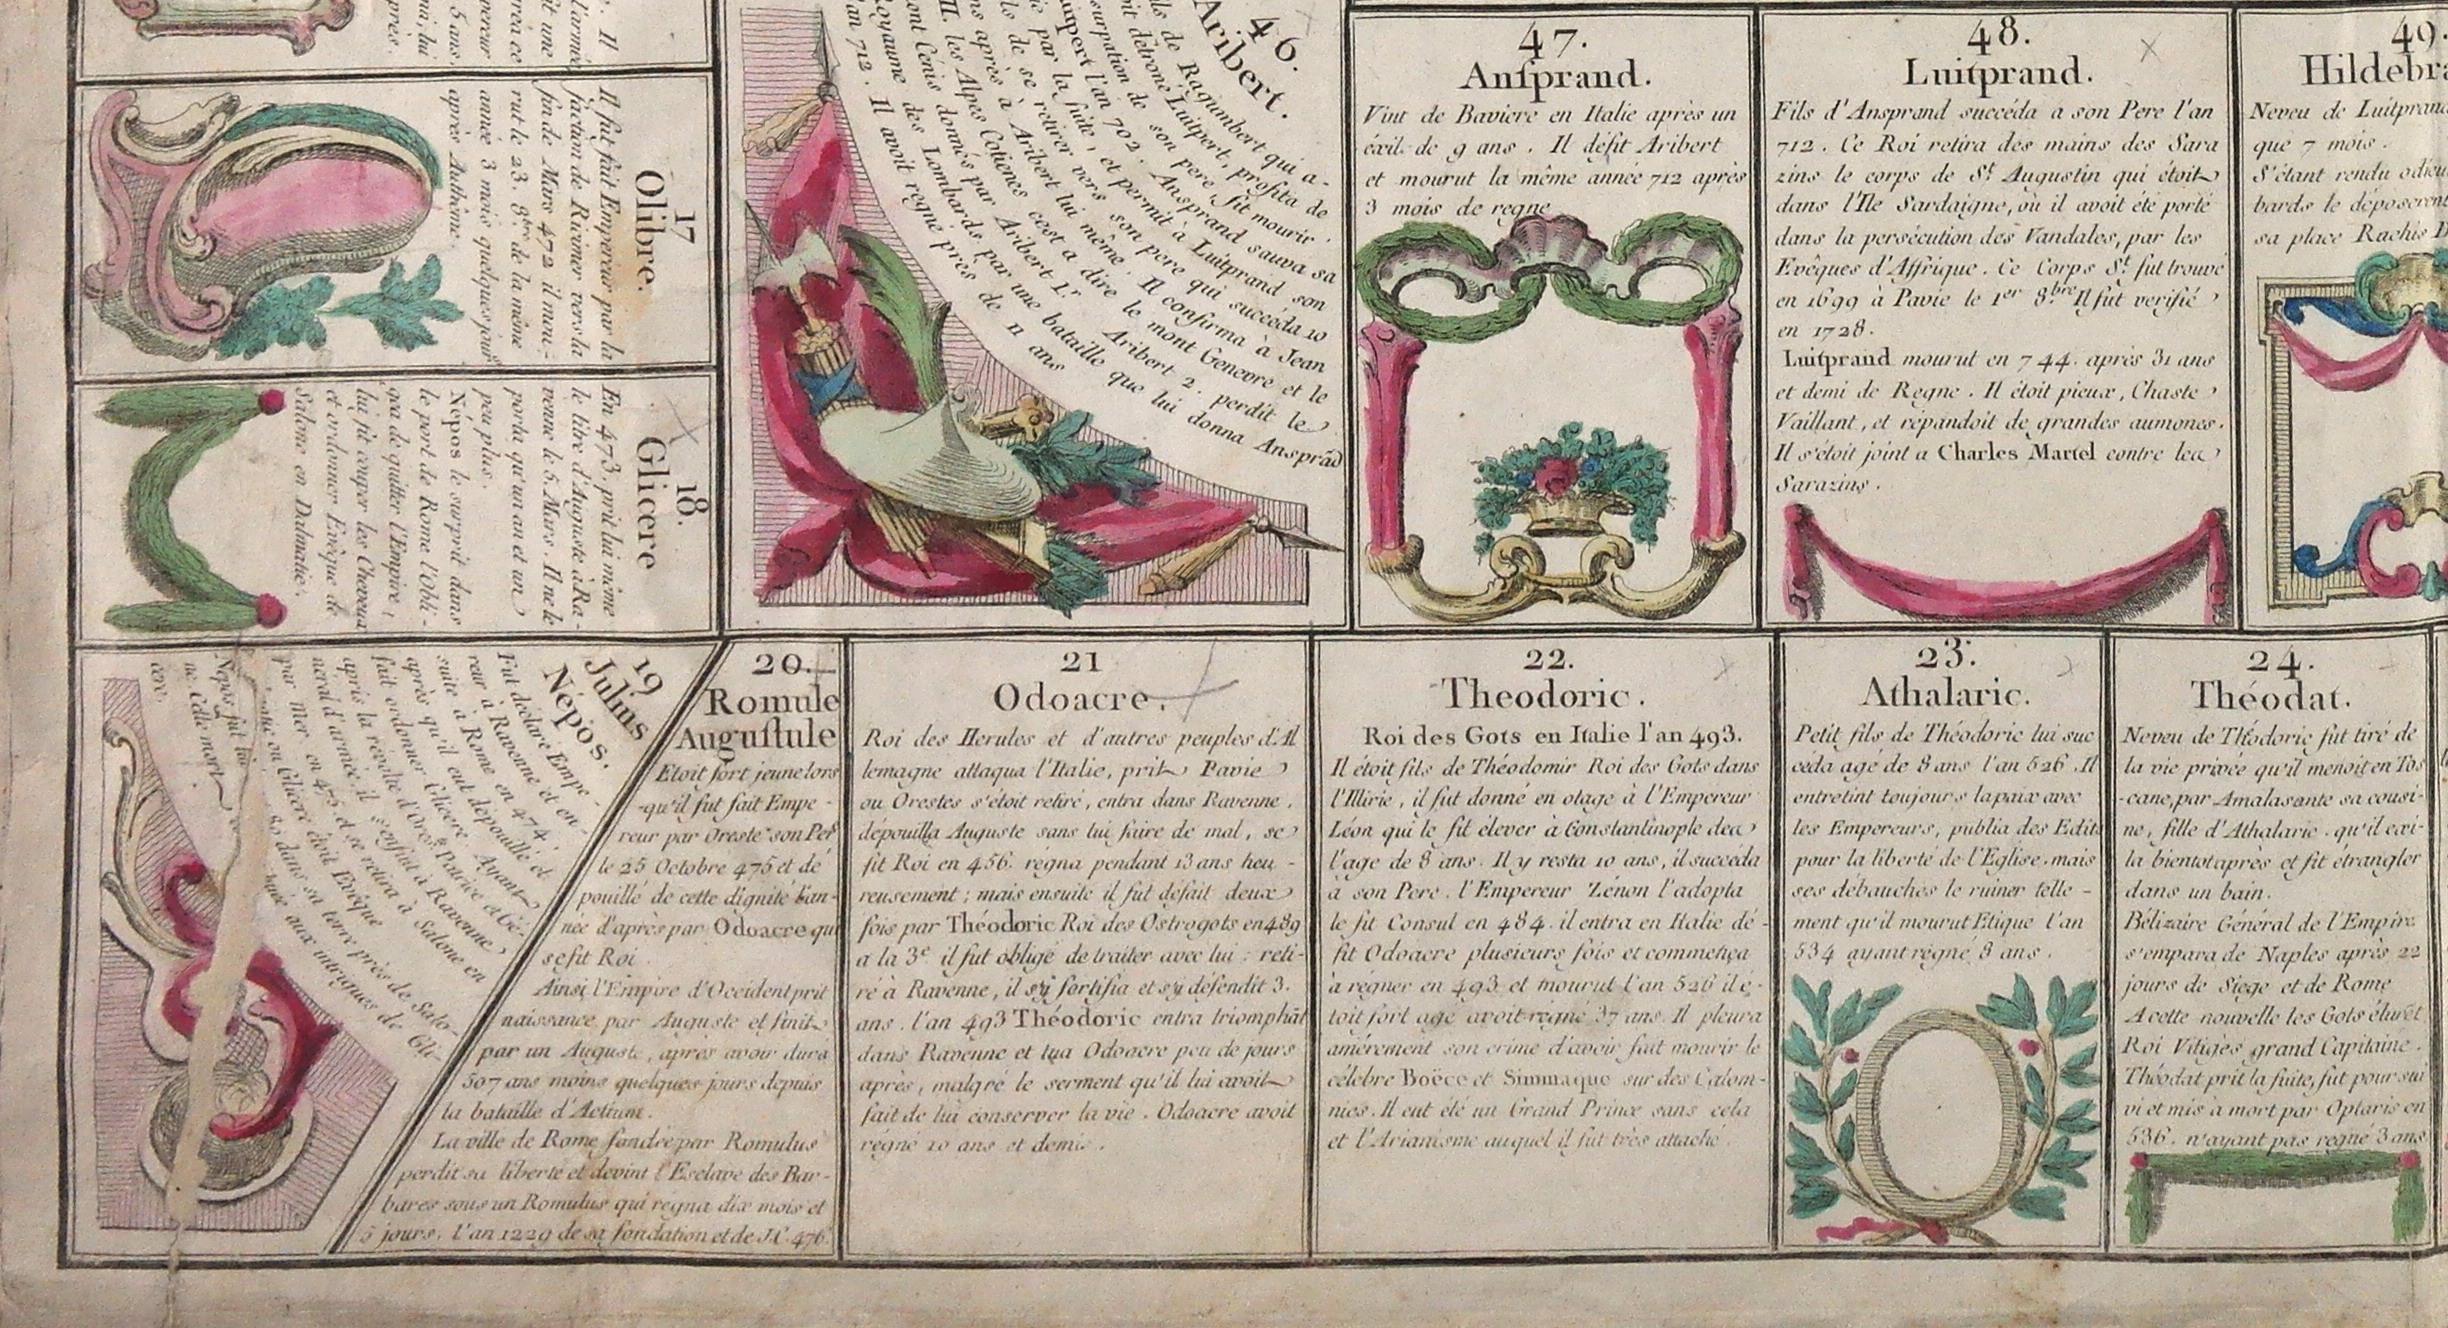 . Il
l'armé
it une
rréa ce
pereur
5 ans.
na, lui
près.
17
Olibre.
Il fut fait Empereur par la
faction de Ricimer vers la
fin de Mars 472 il mou-
rut le 23. 8.bre de la même
année 3 mois quelques jour
après Anthême.
18.
Glicere
En 473. prit lui même
le titre d'Auguste à Ra-
venne le 5. Mars. Il ne le
porta qu'un an et un
peu plus.
Népos le surprit dans
le port de Rome l'Obli-
gea de quitter l'Empire,
lui fit couper les Cheveux
et ordonner Evêque de
Salone en Dalmatie.
46.
Aribert.
ils de Ragumbert qui a-
oit détroné Luitpert, profita de
surpation de son pere, fit mourir
uitpert l'an 702. Ansprand sauva sa
ie par la fuite, et permit à Luitprand son
ls de se retirer vers son pere qui succéda 10
ns après à Aribert lui même. Il confirma à Jean
II. les Alpes Cotienes c'est a dire le mont Genevre et le
ont Cénis donnés par Aribert 1.r Aribert 2. perdit le
Royaume des Lombards par une bataille que lui donna Ansprãd
an 712. Il avoit regné près de 11 ans
47.
Ansprand.
Vint de Baviere en Italie après un
éxil de 9 ans. Il défit Aribert
et mourut la même année 712 après
3 mois de regne
48.
Luitprand.
Fils d'Ansprand succéda a son Pere l'an
712. Ce Roi retira des mains des Sara
zins le corps de S.t Augustin qui étoit
dans l'Ile Sardaigne, où il avoit été porté
dans la persécution des Vandales, par les
Evêques d'Affrique. Ce Corps S.t fut trouvé
en 1699 à Pavie le 1er 8.bre Il fut verifié
en 1728.
Luitprand mourut en 744. après 31 ans
et demi de Regne. Il étoit pieux, Chaste
Vaillant, et répandoit de grandes aumones.
Il s'étoit joint a Charles Martel contre les
Sarazins.
49.
Hildebra
Neveu de Luitprand
que 7 mois.
S'étant rendu odieu
bards le déposerent
sa place Rachis D
19
Julius
Népos.
Fut déclaré Empe-
reur à Ravenne et en-
suite à Rome en 474.
après qu'il eut dépouillé et
fait ordonner Glicere. Ayant
apris la révolte d'Oreste Patrice et Gé-
néral d'armée, il s'enfuit à Ravenne
par mer en 475 et se retira à Salone en
ou Glicere étoit Evêque
Népos fut tué 80 dans sa terre près de Salo-
ne. Celle mort aux intrigues de Gli-
cere.
20.
Romule
Augustule
Etoit fort jeune lors
qu'il fut fait Empe-
reur par Oreste son Per
le 25 Octobre 475 et dé
pouillé de cette dignité l'an-
née d'après par Odoacre qui
se fit Roi.
Ainsi l'Empire d'Occident prit
naissance par Auguste et finit
par un Auguste, après avoir duré
507 ans moins quelques jours depuis
la bataille d'Actium.
La ville de Rome fondée par Romulus
perdit sa liberté et devint l'Esclave des Bar-
bares sous un Romulus qui régna dix mois et
5 jours, l'an 1229 de sa fondation et de J.C. 476.
21
Odoacre.
Roi des Herules et d'autres peuples d'Al
lemagne attaqua l'Italie, prit Pavie
ou Orestes s'étoit retiré, entra dans Ravenne,
dépouilla Auguste sans lui faire de mal, se
fit Roi en 456. régna pendant 13 ans heu-
reusement; mais ensuite il fut défait deux
fois par Théodoric Roi des Ostrogots en 489
a la 3e il fut obligé de traiter avec lui: reti-
ré à Ravenne, il s'y fortifia et s'y défendit 3.
ans. l'an 493 Théodoric entra triomphãt
dans Ravenne et tua Odoacre peu de jours
après, malgré le serment qu'il lui avoit
fait de lui conserver la vie. Odoacre avoit
régné 10 ans et demi.
22.
Theodoric.
Roi des Gots en Italie l'an 493.
Il étoit fils de Théodomir Roi des Gots dans
l'Illirie, il fut donné en otage à l'Empereur
Léon qui le fit élever à Constantinople des
l'age de 8 ans. Il y resta 10 ans, il succéda
à son Pere. l'Empereur Zénon l'adopta
le fit Consul en 484. il entra en Italie dé-
fit Odoacre plusieurs fois et commença
à régner en 493 et mourut l'an 526 il é-
toit fort agé avoit régné 37 ans. Il pleura
amérement son crime d'avoir fait mourir le
célebre Boëce et Simmaque sur des Calom-
nies. Il eut été un Grand Prince sans cela
et l'Arianisme auquel il fut très attaché.
23.
Athalaric.
Petit fils de Théodoric lui suc
céda agé de 8 ans l'an 526. Il
entretint toujours la paix avec
les Empereurs, publia des Edits
pour la liberté de l'Eglise. mais
ses débauches le ruiner telle-
ment qu'il mourut Etique l'an
534 ayant régné 8 ans.
24.
Théodat.
Neveu de Théodoric fut tiré de
la vie privée qu'il menoit en Tos
-cane, par Amalasonte sa cousi-
ne, fille d'Athalaric. qu'il exi-
la bientot après et fit étrangler
dans un bain.
Bélizaire Général de l'Empire
s'empara de Naples après 22
jours de Siege et de Rome
A cette nouvelle les Gots élurẽt
Roi Vitigès grand Capitaine.
Théodat prit la fuite, fut poursui
vi et mis à mort par Optaris en
536. n'ayant pas regné 3 ans